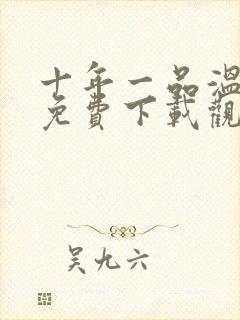 十年一品溫
免費下載觀
吴九六